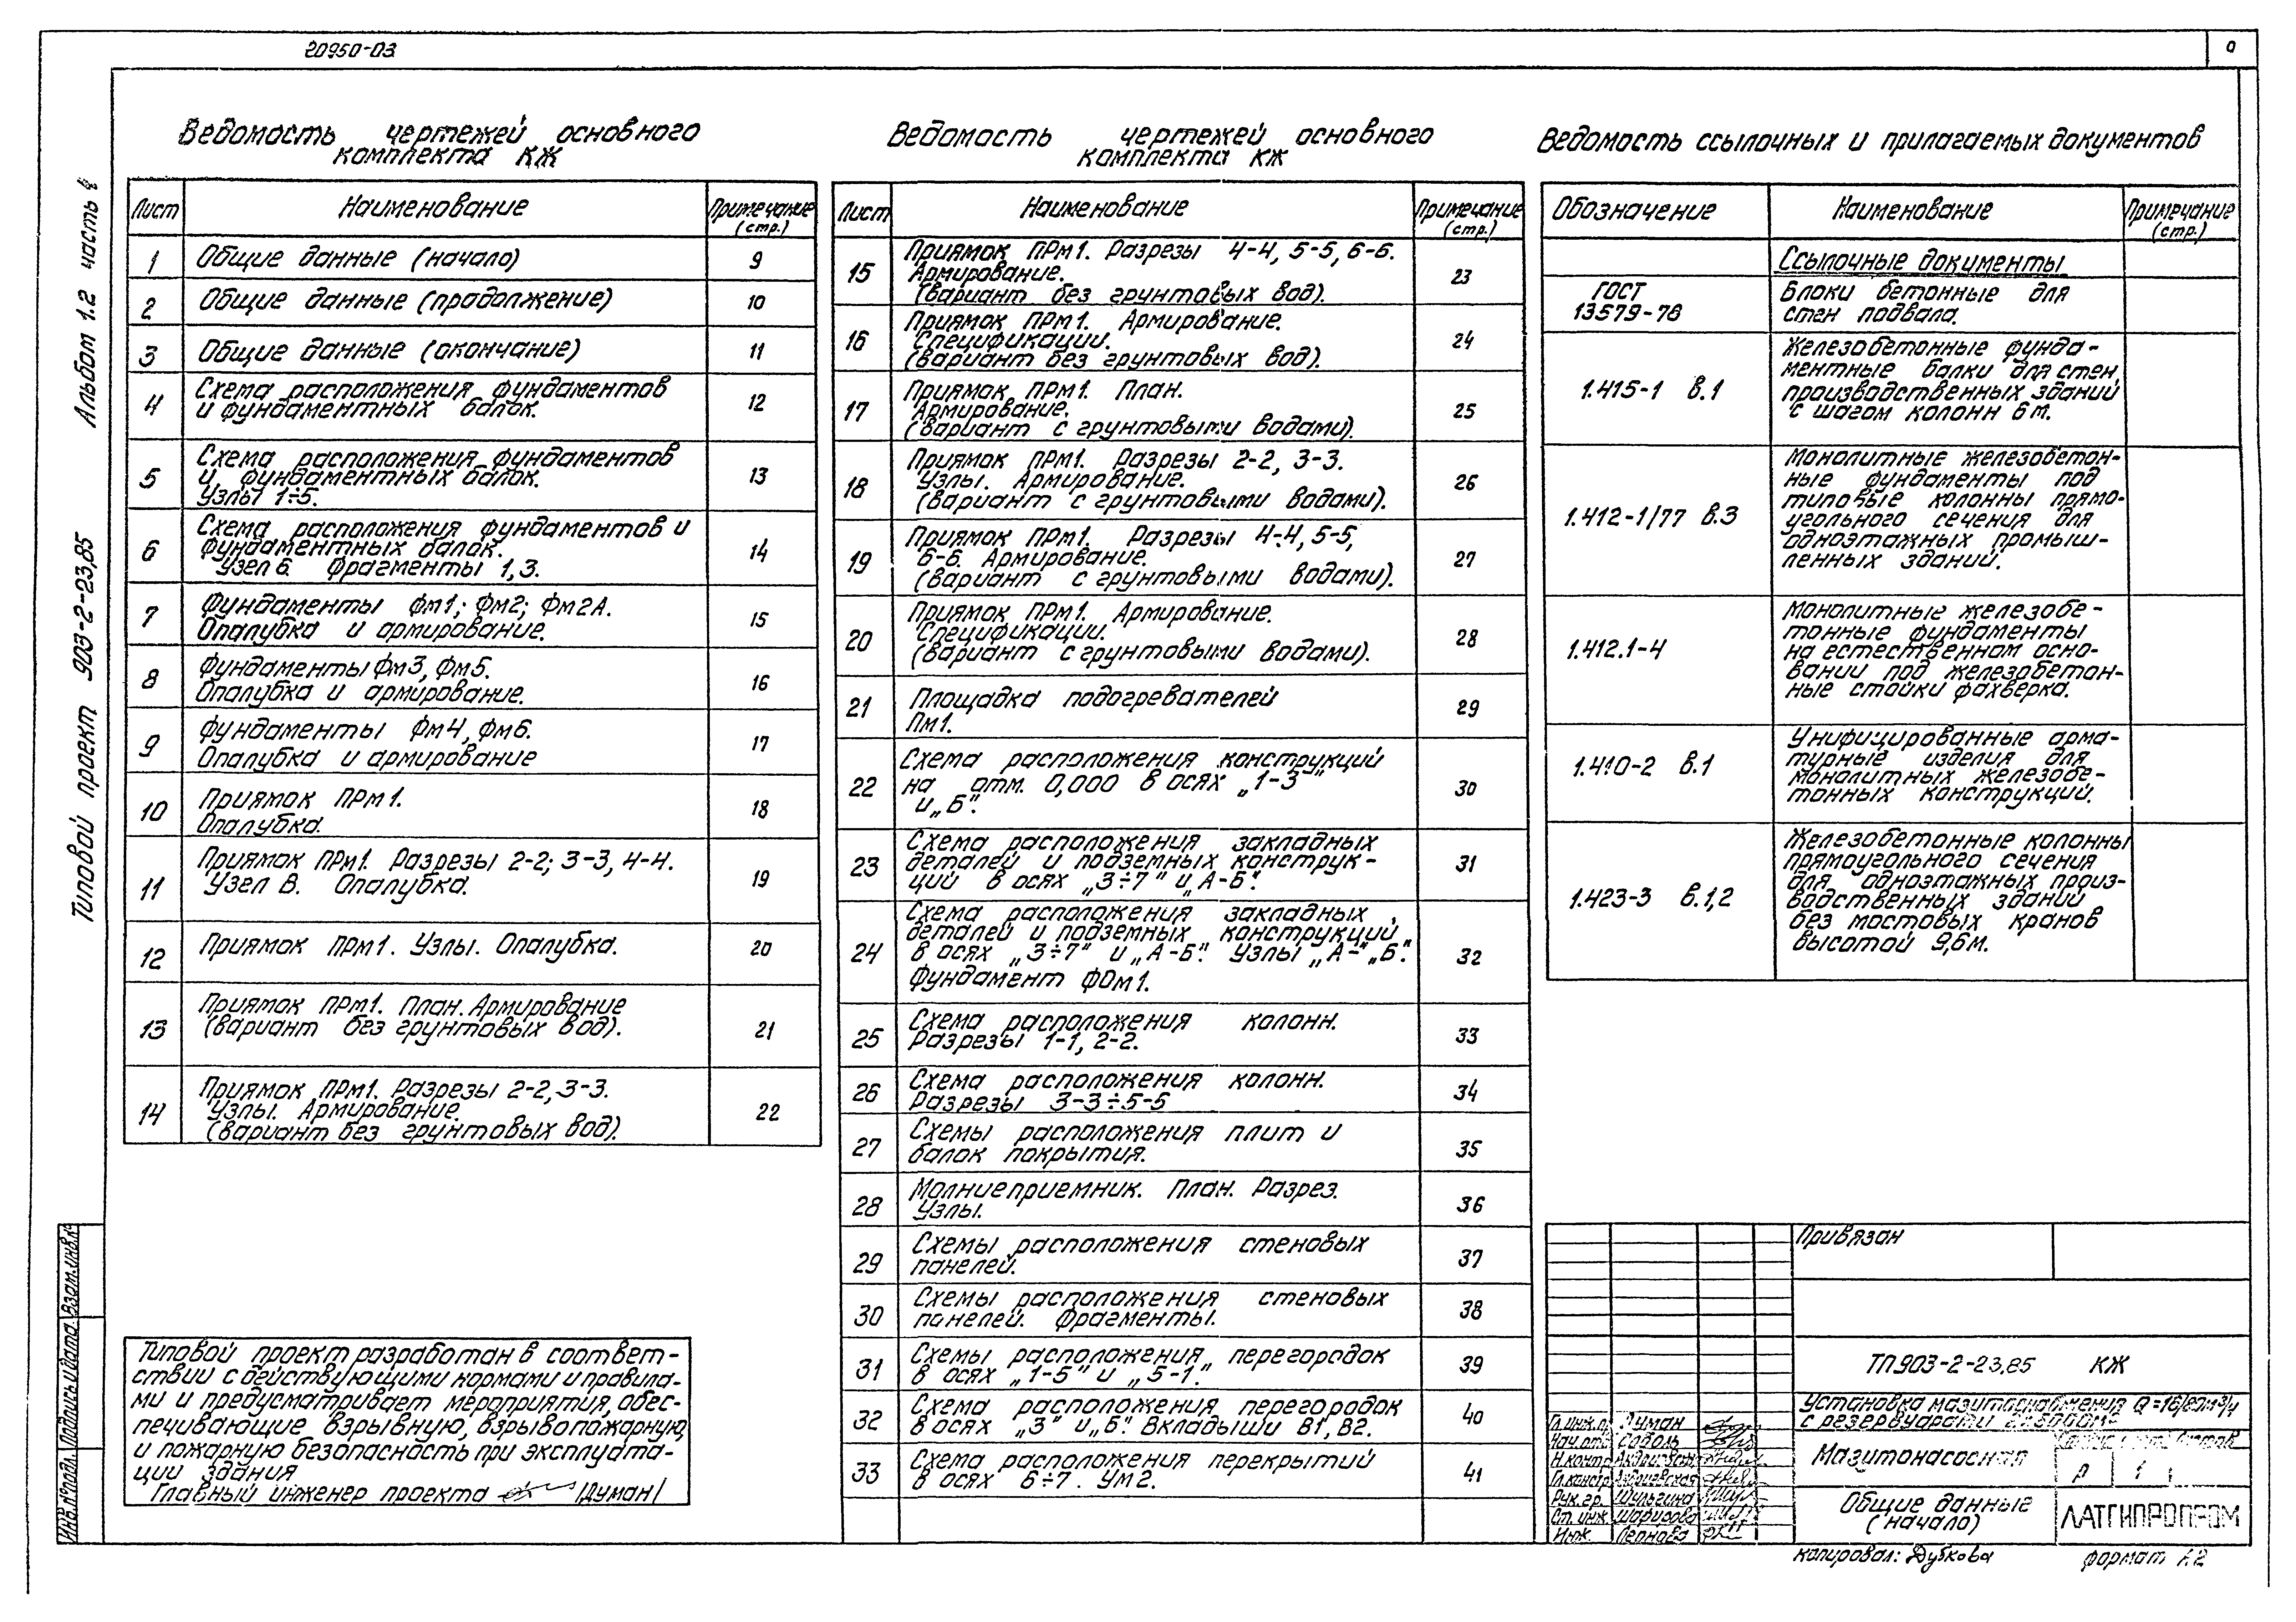 20950-03
Альбом 1.2 часть
Типовой проект 903-2-23,85
Ведомость чертежей основного
комплекта КЖ
Лист Наименование Примечание
(стр.)
1 Общие данные (начало) 9
2 Общие данные (продолжение) 10
3 Общие данные (окончание) 11
4 Схема расположения фундаментов
и фундаментных балок. 12
5 Схема расположения фундаментов
и фундаментных балок. 13
Узлы 1÷5.
6 Схема расположения фундаментов и
фундаментных балок. 14
Узел 6. Фрагменты 1,3.
7 Фундаменты Фм1; Фм2; Фм2А. 15
Опалубка и армирование.
8 Фундаменты Фм3, Фм5. 16
Опалубка и армирование.
9 Фундаменты Фм4, Фм6. 17
Опалубка и армирование
10 Приямок ПРм1. 18
Опалубка.
11 Приямок ПРм1. Разрезы 2-2; 3-3, 4-4. 19
Узел В. Опалубка.
12 Приямок ПРм1. Узлы. Опалубка. 20
13 Приямок ПРм1. План. Армирование 21
(вариант без грунтовых вод).
14 Приямок ПРм1. Разрезы 2-2, 3-3. 22
Узлы. Армирование.
(вариант без грунтовых вод).
Типовой проект разработан в соответ-
ствии с действующими нормами и правила-
ми и предусматривает мероприятия, обес-
печивающие взрывную, взрывопожарную,
и пожарную безопасность при эксплуата-
ции здания
Главный инженер проекта /Думан/
Ведомость чертежей основного
комплекта КЖ
Лист Наименование Примечание
(стр.)
15 Приямок ПРм1. Разрезы 4-4, 5-5, 6-6. 23
Армирование.
(вариант без грунтовых вод).
16 Приямок ПРм1. Армирование. 24
Спецификации.
(вариант без грунтовых вод).
17 Приямок ПРм1. План. 25
Армирование.
(вариант с грунтовыми водами).
18 Приямок ПРм1. Разрезы 2-2, 3-3. 26
Узлы. Армирование.
(вариант с грунтовыми водами).
19 Приямок ПРм1. Разрезы 4-4, 5-5, 27
6-6. Армирование.
(вариант с грунтовыми водами).
20 Приямок ПРм1. Армирование. 28
Спецификации.
(вариант с грунтовыми водами).
21 Площадка подогревателей 29
Пм1.
22 Схема расположения конструкций 30
на отм. 0,000 в осях „1-3"
и „Б".
23 Схема расположения закладных 31
деталей и подземных конструк-
ций в осях „3÷7" и „А-Б".
24 Схема расположения закладных 32
деталей и подземных конструкций
в осях „3÷7" и „А-Б". Узлы „А"-„Б".
Фундамент ФОм1.
25 Схема расположения колонн. 33
Разрезы 1-1, 2-2.
26 Схема расположения колонн. 34
Разрезы 3-3÷5-5
27 Схемы расположения плит и 35
балок покрытия.
28 Молниеприемник. План. Разрез. 36
Узлы.
29 Схемы расположения стеновых 37
панелей.
30 Схемы расположения стеновых 38
панелей. Фрагменты.
31 Схемы расположения перегородок 39
в осях „1-5" и „5-1".
32 Схема расположения перегородок 40
в осях „3" и „Б". Вкладыши В1, В2.
33 Схема расположения перекрытий 41
в осях 6÷7. Ум2.
Ведомость ссылочных и прилагаемых документов
Обозначение Наименование Примечание
(стр.)
Ссылочные документы
ГОСТ 13579-78 Блоки бетонные для
стен подвала.
1.415-1 в.1 Железобетонные фунда-
ментные балки для стен
производственных зданий
с шагом колонн 6м.
1.412-1/77 в.3 Монолитные железобетон-
ные фундаменты под
типовые колонны прямо-
угольного сечения для
одноэтажных промыш-
ленных зданий.
1.412.1-4 Монолитные железобе-
тонные фундаменты
на естественном осно-
вании под железобетон-
ные стойки фахверка.
1.410-2 в.1 Унифицированные арма-
турные изделия для
монолитных железобе-
тонных конструкций.
1.423-3 в.1,2 Железобетонные колонны
прямоугольного сечения
для одноэтажных произ-
водственных зданий
без мостовых кранов
высотой 9,6м.
Привязан
ТП.903-2-23,85 КЖ
Установка мазутоснабжения
с резервуарами
Мазутонасосная
Р 1
Общие данные
(начало)
ЛАТГИПРОПРОМ
Гл.инж.пр. Думан
Нач.отд. Соболь
Н.контр. Андриевская
Гл.констр. Андриевская
Рук.гр. Шульгина
Ст.инж. Шарипова
Инж.
Инв.№подл. Подпись и дата. Взам.инв.№
Копировал: Дубкова
формат А2